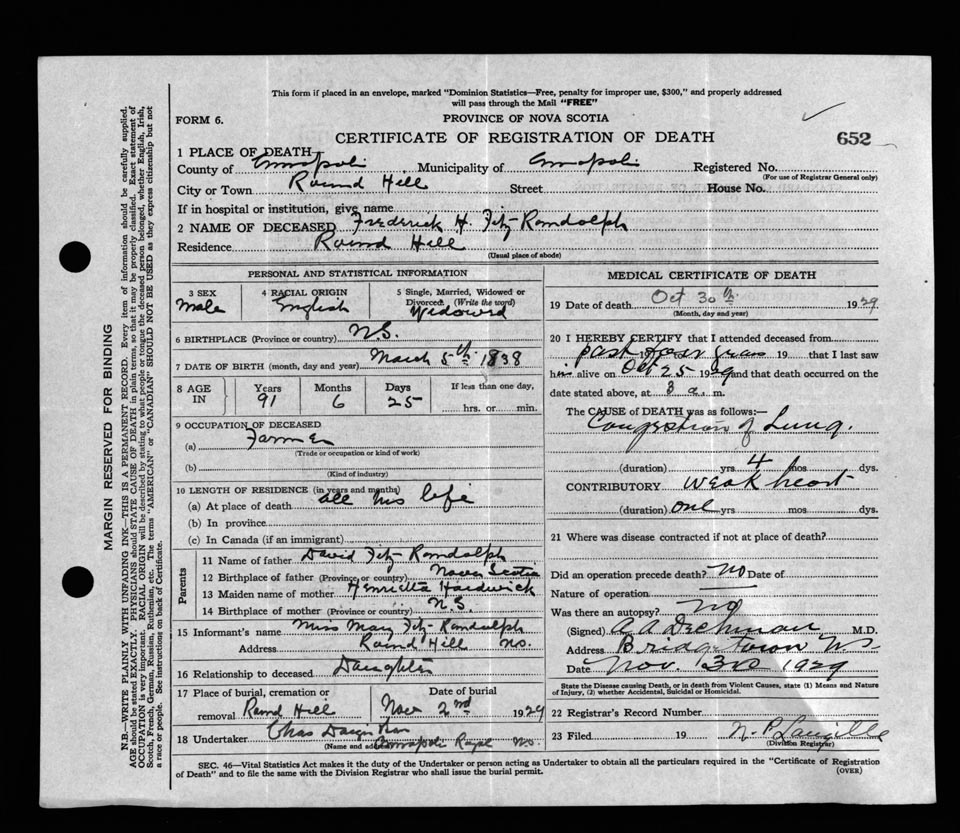 This form if placed in an envelope, marked "Dominion Statistics—Free, penalty for improper use, $300," and properly addressed
will pass through the Mail "FREE"
FORM 6.
PROVINCE OF NOVA SCOTIA
CERTIFICATE OF REGISTRATION OF DEATH
652
1 PLACE OF DEATH
County of Annapolis Municipality of Annapolis Registered No.
(For use of Registrar General only)
City or Town Round Hill Street House No.
If in hospital or institution, give name
2 NAME OF DECEASED Frederick H. Fitz-Randolph
Residence Round Hill
(Usual place of abode)
PERSONAL AND STATISTICAL INFORMATION
3 SEX 4 RACIAL ORIGIN 5 Single, Married, Widowed or
Divorced. (Write the word)
Male English Widowed
6 BIRTHPLACE (Province or country) N.S.
7 DATE OF BIRTH (month, day and year) March 5th 1838
8 AGE IN Years Months Days If less than one day,
91 6 25 hrs. or min.
9 OCCUPATION OF DECEASED
(a) Farmer
(Trade or occupation or kind of work)
(b)
(Kind of industry)
10 LENGTH OF RESIDENCE (in years and months)
(a) At place of death all his life
(b) In province
(c) In Canada (if an immigrant)
Parents
11 Name of father David Fitz-Randolph
12 Birthplace of father (Province or country) Nova Scotia
13 Maiden name of mother Henrietta Hardwick
14 Birthplace of mother (Province or country) N.S.
15 Informant's name Miss Mary Fitz-Randolph
Address Round Hill N.S.
16 Relationship to deceased Daughter
17 Place of burial, cremation or Date of burial
removal Round Hill Nov 2nd 1929
18 Undertaker Chas
(Name and address) Annapolis Royal N.S.
MEDICAL CERTIFICATE OF DEATH
19 Date of death Oct 30th 1929
(Month, day and year)
20 I HEREBY CERTIFY that I attended deceased from
past four years 19 that I last saw
him alive on Oct 25 1929 and that death occurred on the
date stated above, at 3 a. m.
The CAUSE of DEATH was as follows:—
Congestion of Lung.
(duration) yrs 4 mos dys.
CONTRIBUTORY weak heart
(duration) one yrs mos dys.
21 Where was disease contracted if not at place of death?
Did an operation precede death? No Date of
Nature of operation
Was there an autopsy? No
(Signed) A A Dechman M.D.
Address Bridgetown N.S.
Date Nov. 3rd 1929
State the Disease causing Death, or in death from Violent Causes, state (1) Means and Nature
of Injury, (2) whether Accidental, Suicidal or Homicidal.
22 Registrar's Record Number
23 Filed 19 N. P. Langille
(Division Registrar)
SEC. 46—Vital Statistics Act makes it the duty of the Undertaker or person acting as Undertaker to obtain all the particulars required in the "Certificate of Registration
of Death" and to file the same with the Division Registrar who shall issue the burial permit.
(OVER)
MARGIN RESERVED FOR BINDING
N.B.—WRITE PLAINLY WITH UNFADING INK—THIS IS A PERMANENT RECORD. Every item of information should be carefully supplied.
AGE should be stated EXACTLY. PHYSICIANS should STATE CAUSE OF DEATH in plain terms, so that it may be properly classified. Exact statement of
OCCUPATION is very important. RACIAL ORIGIN will be described by stating to what people or tongue the deceased person belonged, whether English, Irish,
Scotch, French, German, Russian, Ruthenian, etc. The terms "AMERICAN" or "CANADIAN" SHOULD NOT BE USED as they express citizenship but not
a race or people. See instructions on back of Certificate.